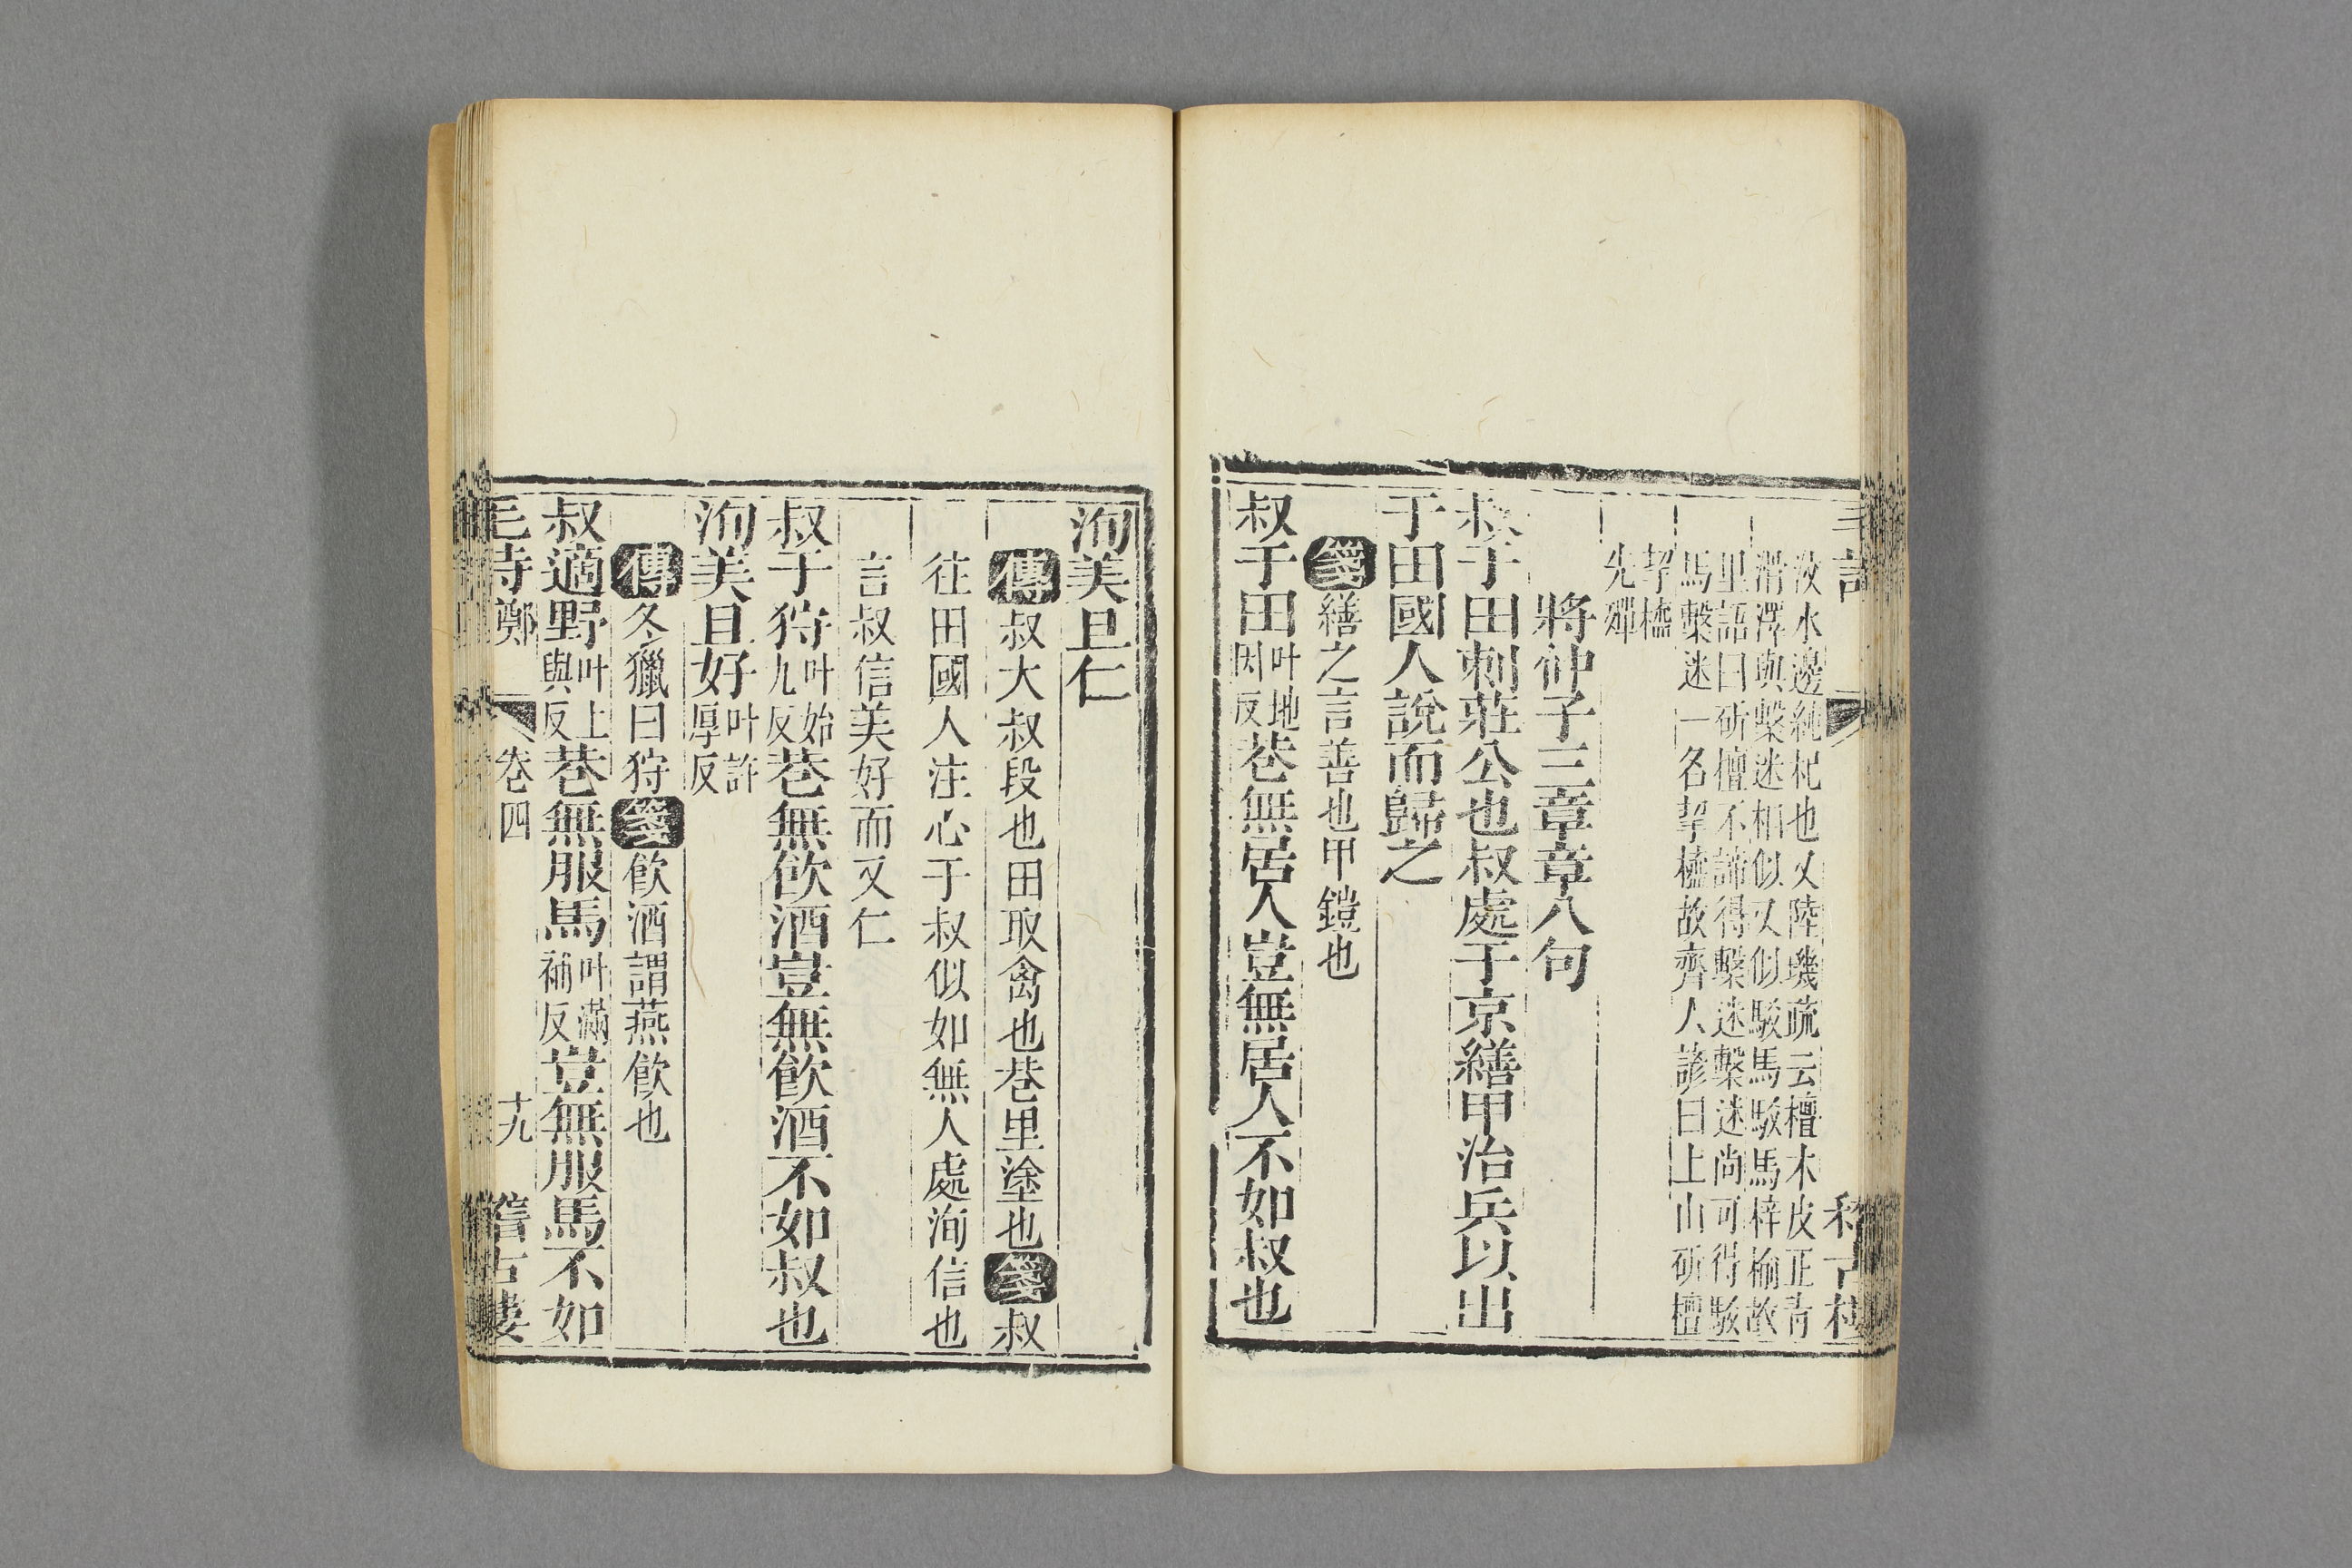 汝水邊純杞也又陸璣疏云檀木皮正青
滑澤與檕迷相似又似駁馬駁馬梓榆故
里語曰斫檀不諦得檕迷檕迷尚可得駁
馬檕迷一名挈橀故齊人諺曰上山斫檀
挈橀
先殫
將仲子三章章八句
叔于田刺莊公也叔處于京繕甲治兵以出
于田國人說而歸之
箋繕之言善也甲鎧也
叔于田叶地因反巷無居人豈無居人不如叔也
洵美且仁
傳叔大叔段也田取禽也巷里塗也箋叔
往田國人注心于叔似如無人處洵信也
言叔信美好而又仁
叔于狩叶始九反巷無飮酒豈無飮酒不如叔也
洵美且好叶許厚反
傳冬獵曰狩箋飮酒謂燕飮也
叔適野叶上與反巷無服馬叶滿補反豈無服馬不如
毛詩鄭 卷四 十九 稽古樓